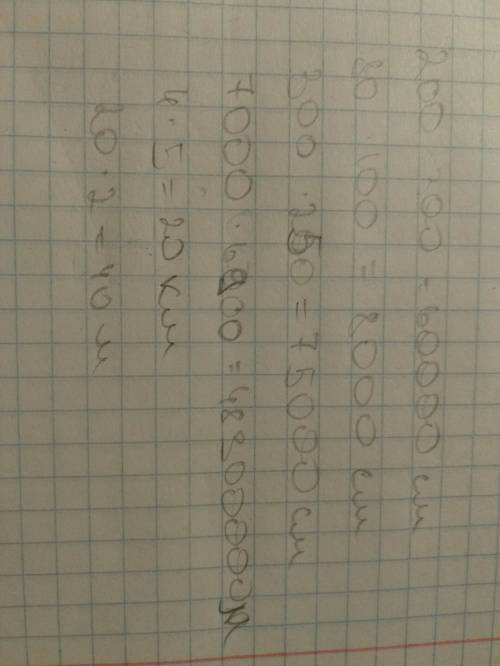 200 · 300 = 60000 см
80 · 100 = 8000 см
300 · 250 = 75000 см
4 · 5 = 20 км
20 · 2 = 40 м